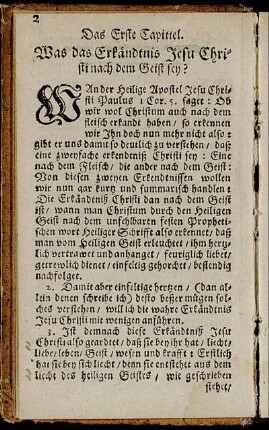 2
Das Erste Capittel.
Was das Erkändtnis Jesu Chri-
sti nach dem Geist sey?
WAn der Heilige Apostel Jesu Chri-
sti Paulus 1 Cor. 5. saget: Ob
wir wol Christum auch nach dem
fleisch erkandt haben/ so erkennen
wir Jhn doch nun mehr nicht also:
gibt er uns damit so deutlich zu verstehen/ daß
eine zweyfache erkendtniß Christi sey: Eine
nach dem Fleisch/ die ander nach dem Geist:
Von diesen zweyen Erkendtnissen wollen
wir nun gar kurtz und summarisch handlen:
Die Erkändtniß Christi dan nach dem Geist
ist/ wann man Christum durch den Heiligen
Geist nach dem unfehlbaren festen Propheti-
schen wort Heiliger Schrifft also erkennet/ daß
man vom Heiligen Geist erleuchtet/ ihm hertz-
lich vertrawet und anhanget/ feuriglich liebet/
getrewlich dienet/ einfeltig gehorchet/ bestendig
nachfolget.
2. Damit aber einfeltige hertzen/ (dan al-
lein denen schreibe ich) desto besser mügen sol-
ches verstehen/ will ich die wahre Erkändtnis
Jesu Christi mit wenigen anführen.
3. Ist demnach diese Erkändtniß Jesu
Christi also geardtet/ daß sie bey ihr hat/ liecht/
liebe/ leben/ Geist/ wesen und krafft: Erstlich
hat sie bey sich liecht/ denn sie entstehet aus dem
liecht des heiligen Geistes/ wie geschrieben
stehet/